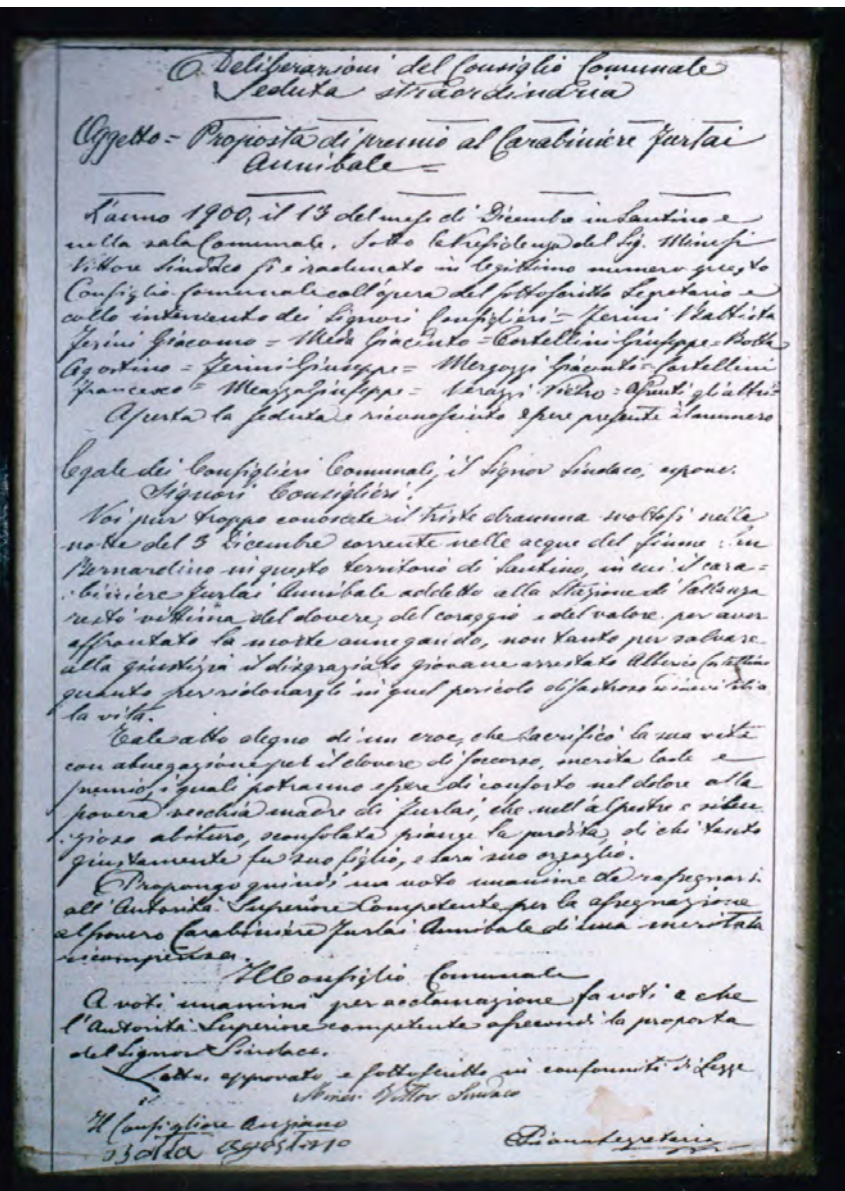 Deliberazioni del Consiglio Comunale
Seduta straordinaria
Oggetto = Proposta di premio al Carabiniere Furlai
Annibale =
L'anno 1900, il 13 del mese di Dicembre in Santino e
nella sala Comunale. Sotto la Presidenza del Sig. Minesi
Vittore Sindaco si è radunato in legittimo numero questo
Consiglio Comunale coll'opera del sottoscritto Segretario e
collo intervento dei Signori Consiglieri = Ferini Battista
Ferini Giacomo = Giacinto = Cortellini Giuseppe = Botta
Agostino = Ferini Giuseppe = Mergozzi Giacinto = Cortellini
Francesco = Meazza Giuseppe = Verazzi Pietro = Assenti gli altri =
Aperta la seduta e riconosciuto essere presente il numero
legale dei Consiglieri Comunali, il Signor Sindaco, espone.
Signori Consiglieri!
Voi pur troppo conoscete il triste dramma svoltosi nella
notte del 3 Dicembre corrente nelle acque del fiume
Bernardino in questo territorio di Santino, in cui il cara=
:biniere Furlai Annibale addetto alla Stazione di Pallanza
restò vittima del dovere, del coraggio e del valore per aver
affrontato la morte annegando, non tanto per salvare
alla giustizia il disgraziato giovane arrestato Alberto Cortellini
quanto per ridonargli in quel pericolo disastroso
la vita.
Tale atto degno di un eroe, che sacrificò la sua vita
con abnegazione pel il dovere di soccorso, merita lode e
premio, i quali potranno essere di conforto nel dolore alla
povera vecchia madre di Furlai, che nell'alpestre e silen=
:zioso abituro, sconsolata piange la perdita, di chi tanto
giustamente fu suo figlio, e sarà suo orgoglio.
Propongo quindi un voto unanime da rassegnarsi
all'Autorità Superiore Competente per la assegnazione
al povero Carabiniere Furlai Annibale di una meritata
ricompensa.
Il Consiglio Comunale
A voti unanimi per acclamazione fa voti a che
l'Autorità Superiore competente assecondi la proposta
del Signor Sindaco.
Letto, approvato e sottoscritto in conformità di Legge
Minesi Vittore Sindaco
Il Consigliere Anziano
Botta Agostino
Piana Segretario